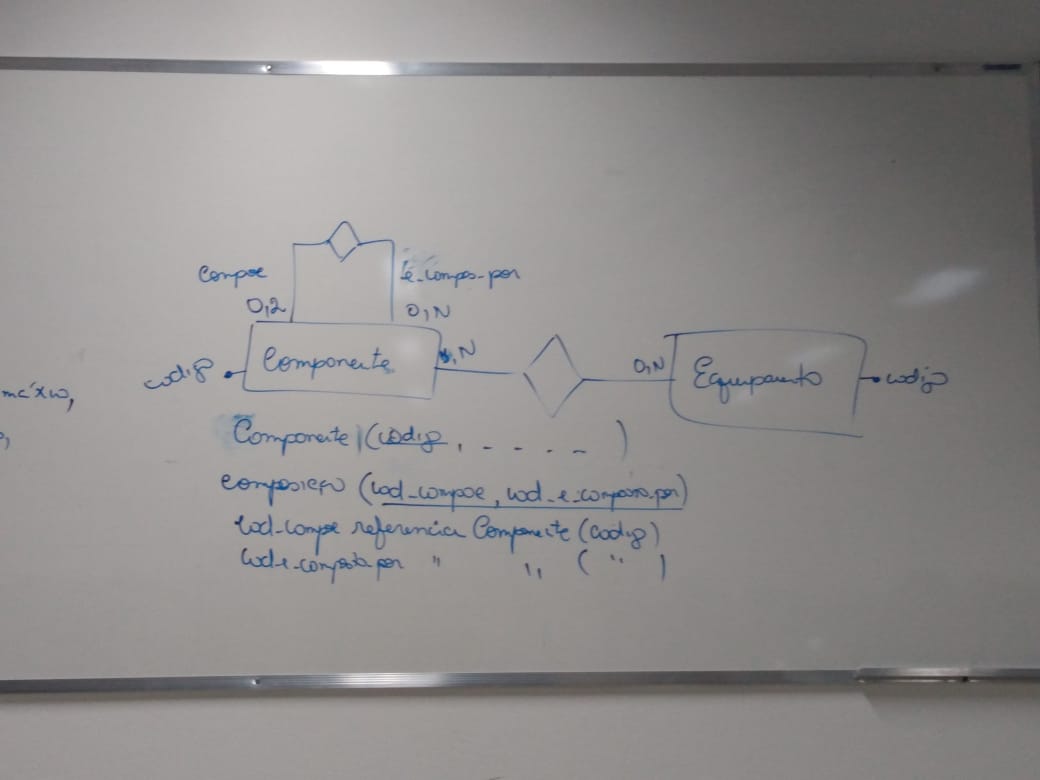 compoe
é_compos_por
0,2
0,N
codigo
Componente
,N
0,N
Equipamento
codigo
máximo,
Componente (codigo, - - - - -)
composição (cod_compoe, cod_e_composto_por)
cod_compoe referencia Componente (codigo)
cod_e_composta_por " " ( " )